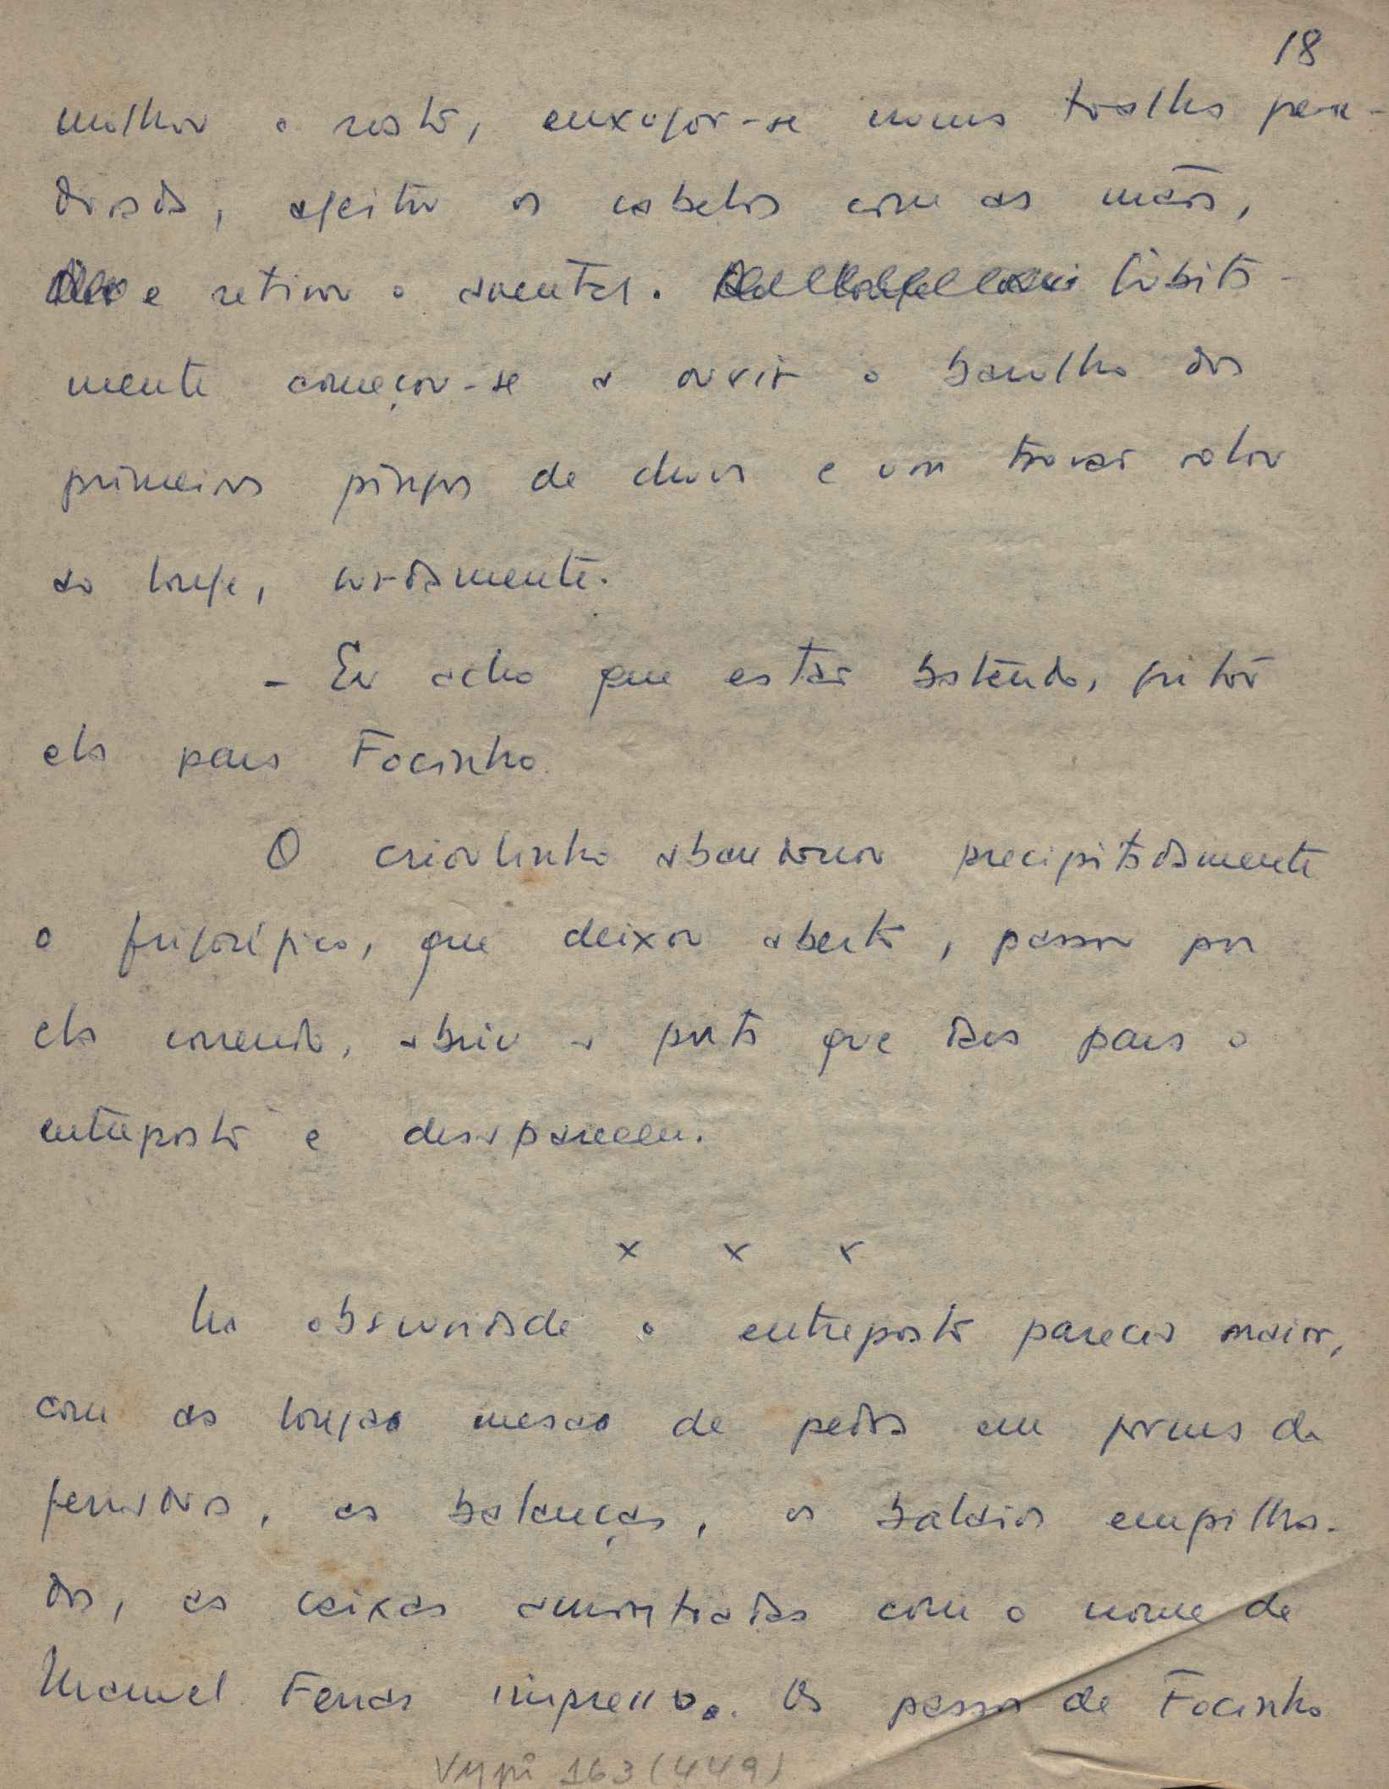 18
molhou o rosto, enxugou-se numa toalha pen-
durada, ajeitou os cabelos com as mãos,
e retirou o avental. Subita-
mente começou-se a ouvir o barulho dos
primeiros pingos de chuva e um trovão rolou
ao longe, surdamente.
- Eu acho que estão batendo, gritou
ela para Focinho.
O crioulinho abandonou precipitadamente
o frigorífico, que deixou aberto, passou por
ela correndo, abriu a porta que dava para o
entreposto e desapareceu.
x x x
Na obscuridade o entreposto parecia maior,
com as longas mesas de pedra em forma de
ferradura, as balanças, os balaios empilha-
dos, as caixas amontoadas com o nome de
Manuel Ferraz impresso. Os passos de Focinho
163 (449)